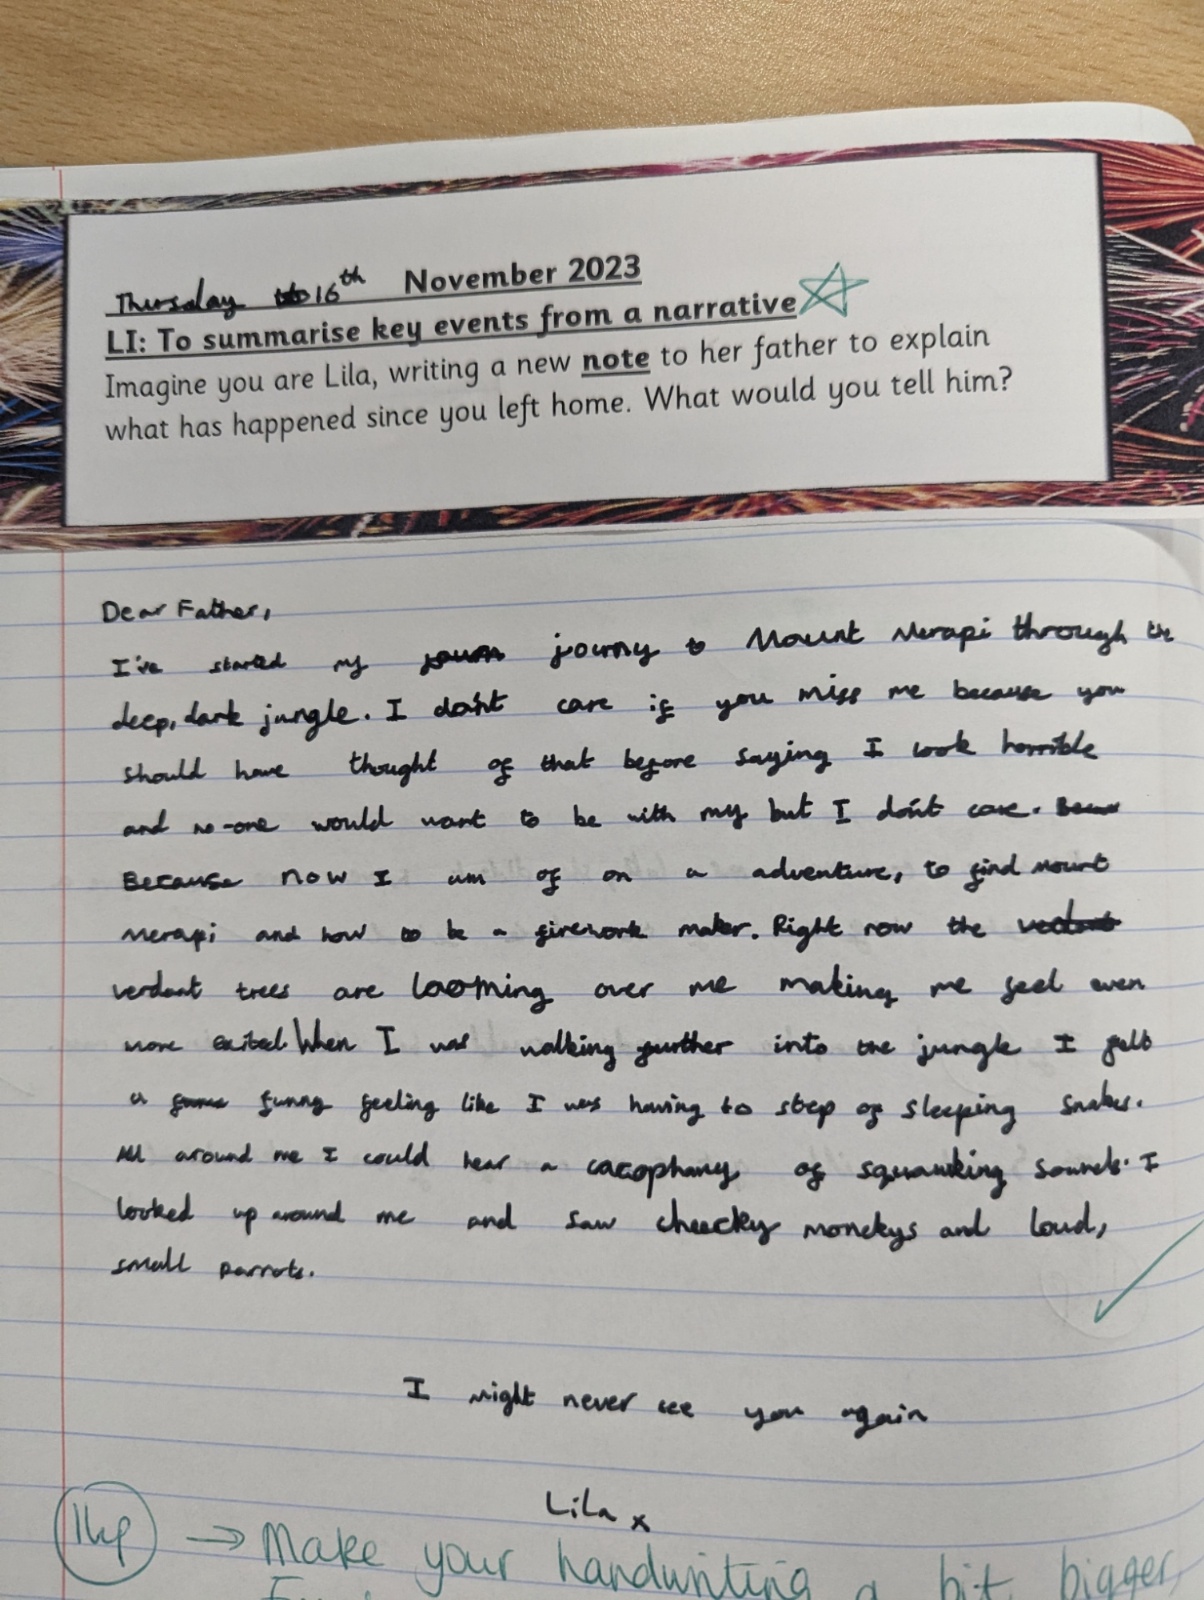 Thursday 16th November 2023
LI: To summarise key events from a narrative
Imagine you are Lila, writing a new note to her father to explain
what has happened since you left home. What would you tell him?
Dear Father,
I've started my journy to Mount Merapi through the
deep, dark jungle. I don't care if you miss me because you
should have thought of that before saying I look horrible
and no-one would want to be with my but I don't care.
Because now I am of on a adventure, to find mount
merapi and how to be a firework maker. Right now the
verdant trees are looming over me making me feel even
more exited. When I was walking further into the jungle I felt
a funny feeling like I was having to step of sleeping snakes.
All around me I could hear a cacophany of squawking sounds. I
looked up around me and saw cheecky monekys and loud,
small parrots.
I might never see you again
Lila x
→ Make your handwriting a bit bigger,